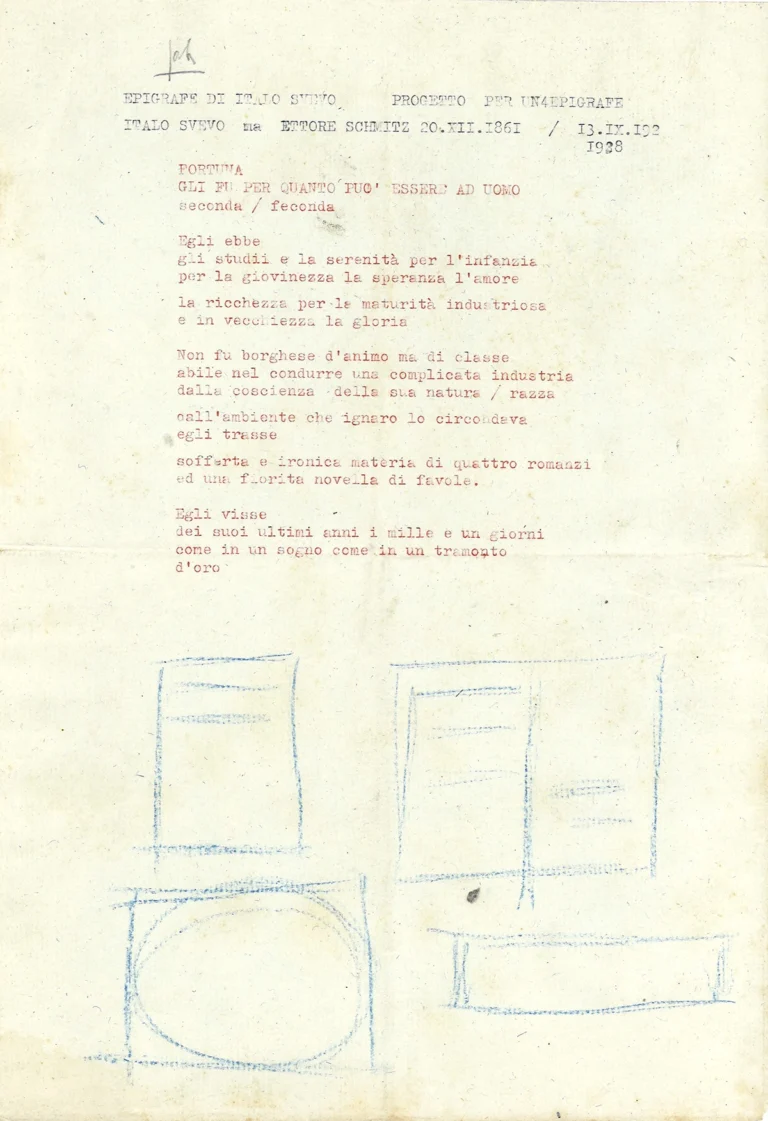 EPIGRAFE DI ITALO SVEVO. PROGETTO PER UN4EPIGRAFE
ITALO SVEVO ma ETTORE SCHMITZ 20.XII.1861 / 13.IX.192
1928
FORTUNA
GLI FU PER QUANTO PUO' ESSERE AD UOMO
seconda / feconda
Egli ebbe
gli studii e la serenità per l'infanzia
per la giovinezza la speranza l'amore
la ricchezza per la maturità industriosa
e in vecchiezza la gloria
Non fu borghese d'animo ma di classe
abile nel condurre una complicata industria
dalla coscienza della sua natura / razza
call'ambiente che ignaro lo circondava
egli trasse
sofferta e ironica materia di quattro romanzi
ed una fiorita novella di favole.
Egli visse
dei suoi ultimi anni i mille e un giorni
come in un sogno come in un tramonto
d'oro